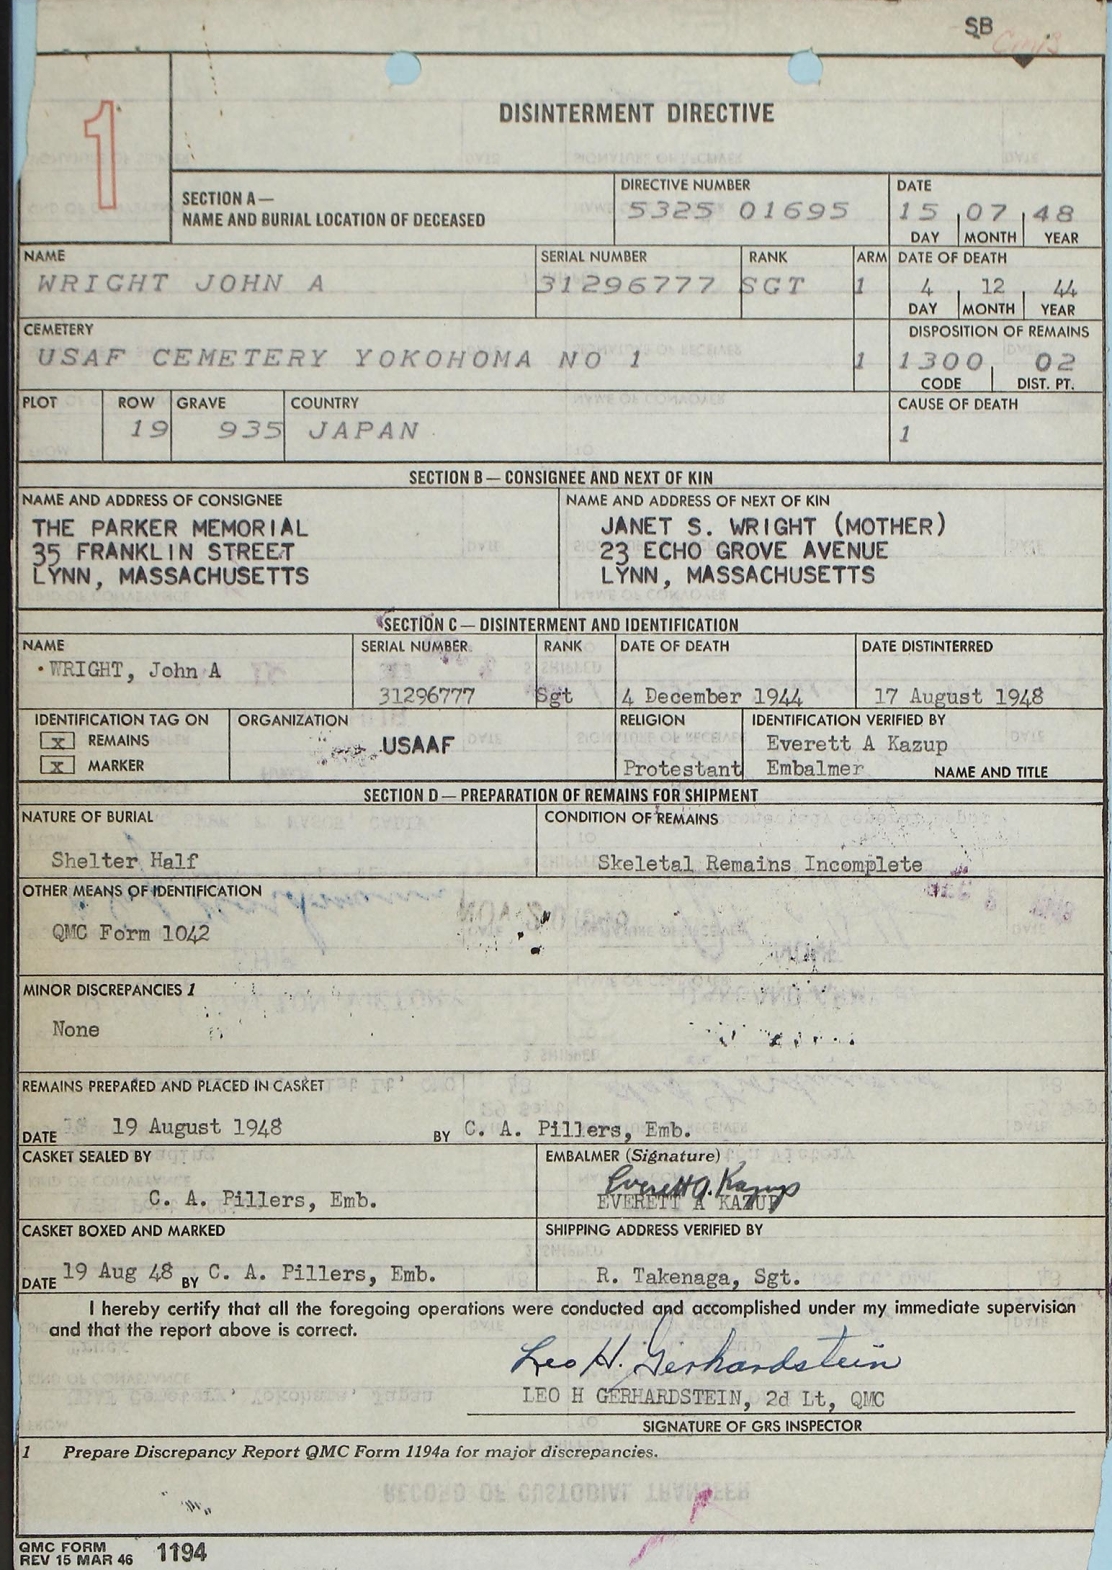 SB
1
DISINTERMENT DIRECTIVE
SECTION A—
NAME AND BURIAL LOCATION OF DECEASED
DIRECTIVE NUMBER
5325 01695
DATE
15 07 48
DAY MONTH YEAR
NAME
WRIGHT JOHN A
SERIAL NUMBER
31296777
RANK
SGT
ARM
1
DATE OF DEATH
4 12 44
DAY MONTH YEAR
CEMETERY
USAF CEMETERY YOKOHOMA NO 1
1
DISPOSITION OF REMAINS
1300 02
CODE DIST. PT.
PLOT
ROW
19
GRAVE
935
COUNTRY
JAPAN
CAUSE OF DEATH
1
SECTION B — CONSIGNEE AND NEXT OF KIN
NAME AND ADDRESS OF CONSIGNEE
THE PARKER MEMORIAL
35 FRANKLIN STREET
LYNN, MASSACHUSETTS
NAME AND ADDRESS OF NEXT OF KIN
JANET S. WRIGHT (MOTHER)
23 ECHO GROVE AVENUE
LYNN, MASSACHUSETTS
SECTION C — DISINTERMENT AND IDENTIFICATION
NAME
WRIGHT, John A
SERIAL NUMBER
31296777
RANK
Sgt
DATE OF DEATH
4 December 1944
DATE DISTINTERRED
17 August 1948
IDENTIFICATION TAG ON
x REMAINS
x MARKER
ORGANIZATION
USAAF
RELIGION
Protestant
IDENTIFICATION VERIFIED BY
Everett A Kazup
Embalmer NAME AND TITLE
SECTION D — PREPARATION OF REMAINS FOR SHIPMENT
NATURE OF BURIAL
Shelter Half
CONDITION OF REMAINS
Skeletal Remains Incomplete
OTHER MEANS OF IDENTIFICATION
QMC Form 1042
MINOR DISCREPANCIES 1
None
REMAINS PREPARED AND PLACED IN CASKET
DATE 19 August 1948 BY C. A. Pillers, Emb.
CASKET SEALED BY
C. A. Pillers, Emb.
EMBALMER (Signature)
Everett A. Kazup
EVERETT A KAZUP
CASKET BOXED AND MARKED
DATE 19 Aug 48 BY C. A. Pillers, Emb.
SHIPPING ADDRESS VERIFIED BY
R. Takenaga, Sgt.
I hereby certify that all the foregoing operations were conducted and accomplished under my immediate supervision
and that the report above is correct.
Leo H. Gerhardstein
LEO H GERHARDSTEIN, 2d Lt, QMC
SIGNATURE OF GRS INSPECTOR
1 Prepare Discrepancy Report QMC Form 1194a for major discrepancies.
QMC FORM
REV 15 MAR 46 1194